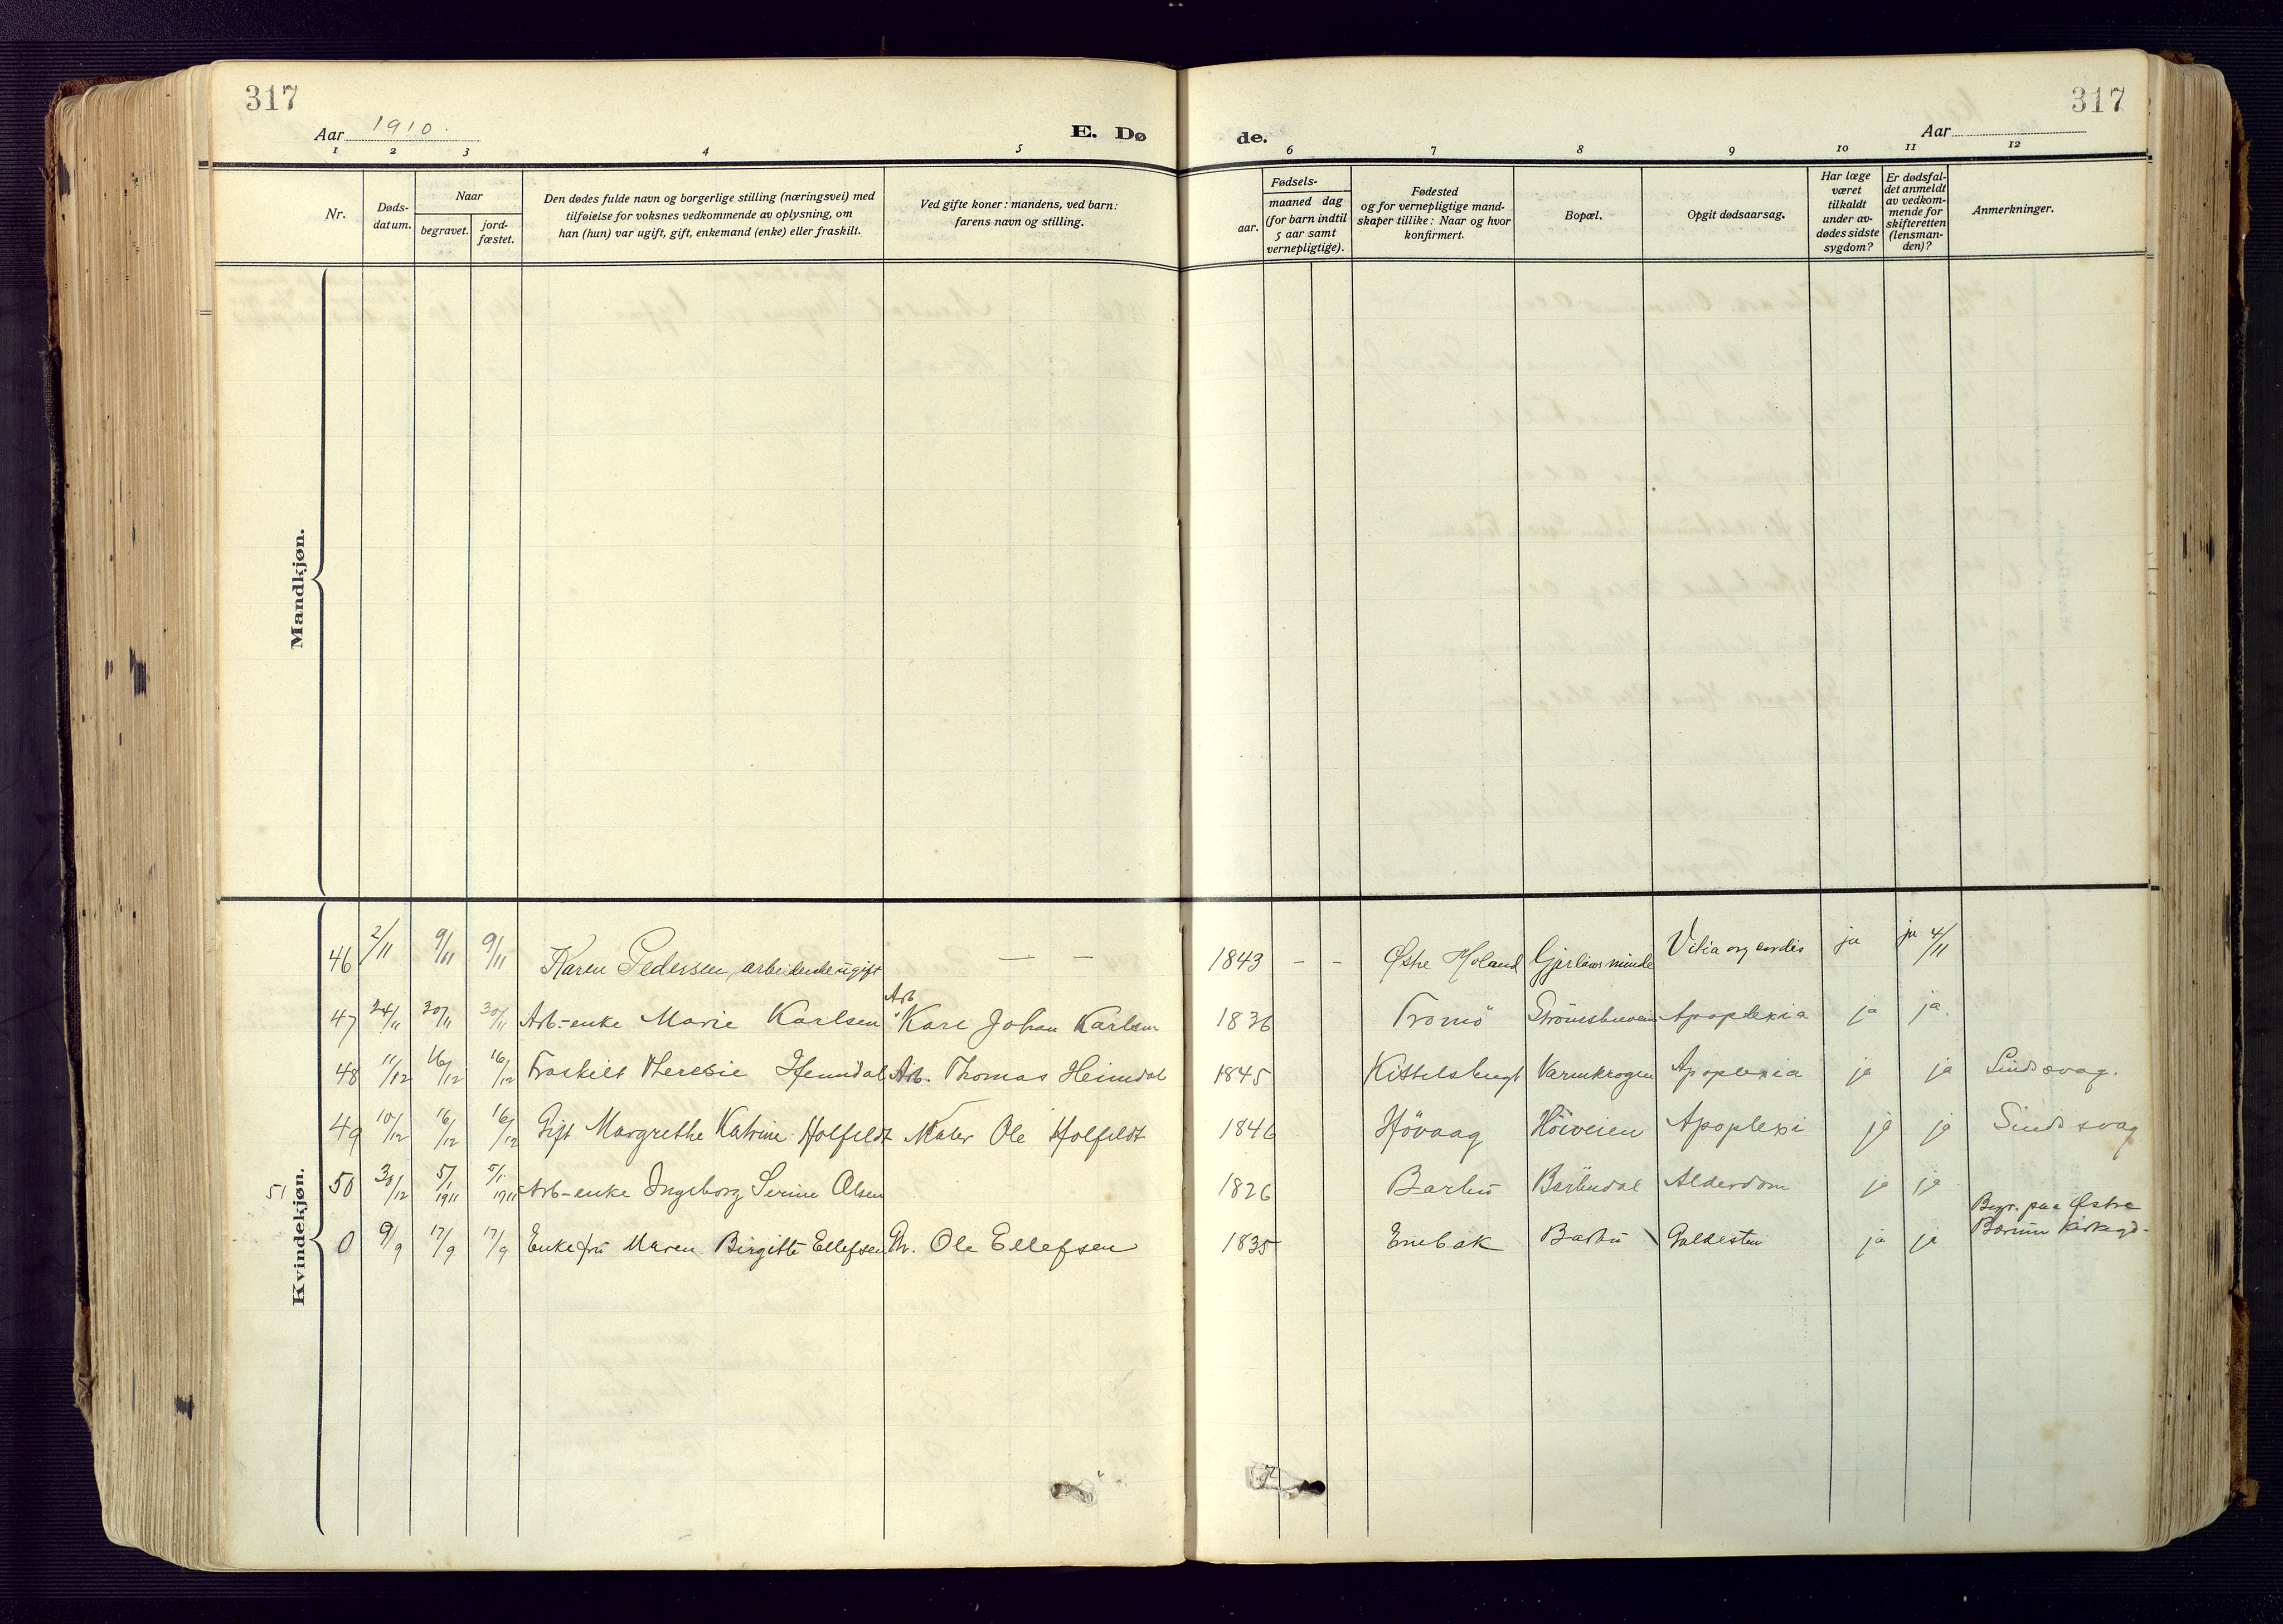 317
317
Aar 1910.
E. Dø
de.
Aar
1 2 3 4 5 6 7 8 9 10 11 12
Nr.
Døds-
datum.
Naar
begravet.
jord-
fæstet.
Den dødes fulde navn og borgerlige stilling (næringsvei) med
tilføielse for voksnes vedkommende av oplysning, om
han (hun) var ugift, gift, enkemand (enke) eller fraskilt.
Ved gifte koner: mandens, ved barn:
farens navn og stilling.
aar.
Fødsels-
maaned dag
(for barn indtil
5 aar samt
vernepligtige).
Fødested
og for vernepligtige mand-
skaper tillike: Naar og hvor
konfirmert.
Bopæl.
Opgit dødsaarsag.
Har læge
været
tilkaldt
under av-
dødes sidste
sygdom?
Er dødsfal-
det anmeldt
av vedkom-
mende for
skifteretten
(lensman-
den)?
Anmerkninger.
Mandkjøn.
Kvindekjøn.
46 2/11 9/11 9/11 Karen Pedersen, arbeiderske ugift — — 1843 – – Østre Moland Gjerløwsminde Vitia org cordis ja ja 4/11
47 24/11 30/11 30/11 Arb.-enke Marie Karlsen Arb. Karl Johan Karlsen 1836 Tromö Apoplexia ja ja.
48 11/12 16/12 16/12 Fraskilt Theresie Heimdal Arb. Thomas Heimdal 1845 Kittelsbugt Varmkrogen Apoplexia ja ja Sindssvag.
49 10/12 16/12 16/12 Gift Margrethe Katrine Holfeldt Maler Ole Holfeldt 1846 Hövaag Höiveien Apoplexi ja ja Sindssvag
51 50 30/12 5/1 1911 5/1 1911 Arb-enke Ingeborg Serine Olsen 1826 Barbu Barbudal Alderdom ja ja
0 9/9 17/9 17/9 Enkefru Maren Birgitte Ellefsen Ole Ellefsen 1835 Enebak Barbu Galdesten ja ja Begr. paa Østre
Bærum Kirkegd.